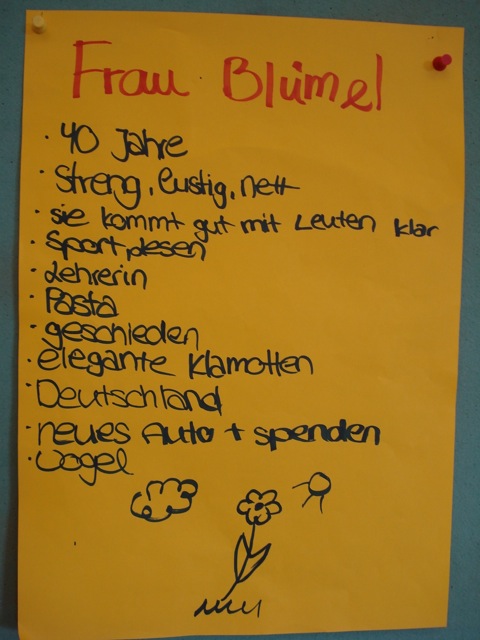 Frau Blümel
· 40 Jahre
· Streng, lustig, nett
· sie kommt gut mit Leuten klar
· Sport, lesen
· Lehrerin
· Pasta
· geschieden
· elegante Klamotten
· Deutschland
· neues Auto + spenden
· Vogel